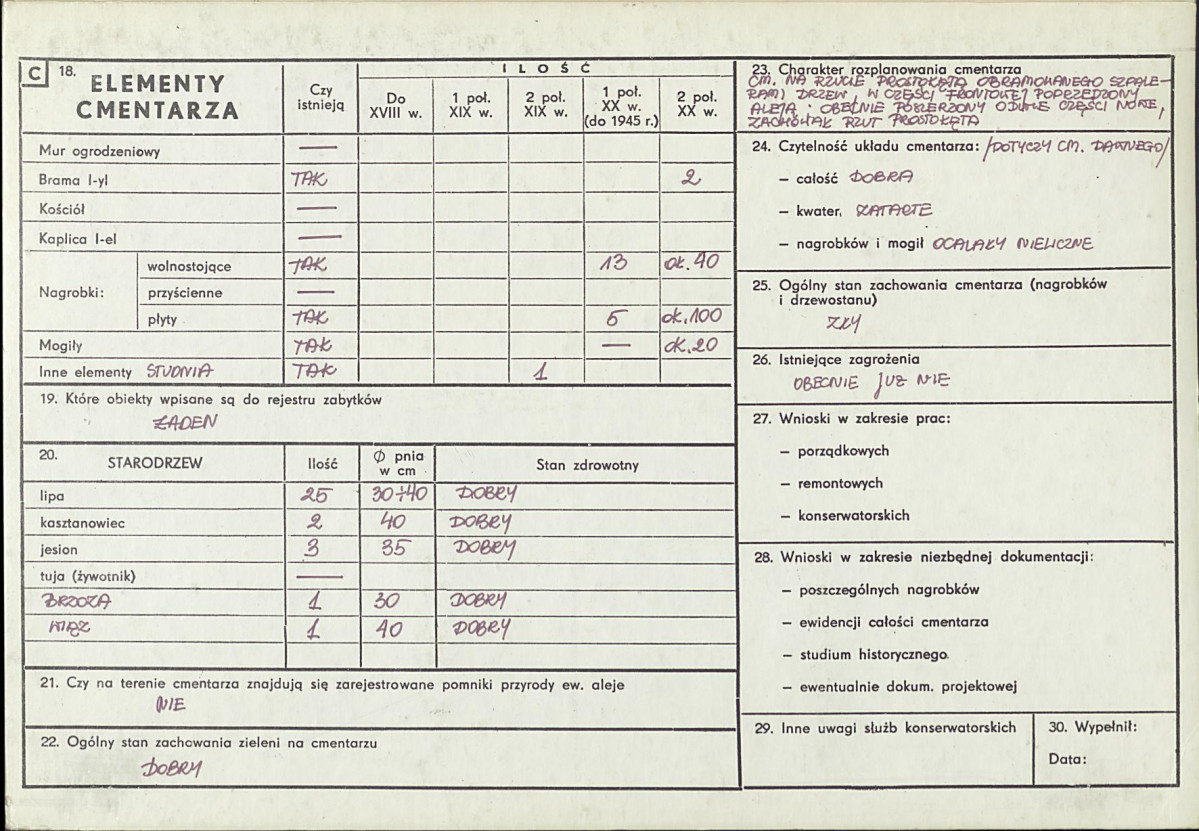 C 18. ELEMENTY CMENTARZA
Czy istnieją
ILOŚĆ
Do XVIII w.
1 poł. XIX w.
2 poł. XIX w.
1 poł. XX w. (do 1945 r.)
2 poł. XX w.
Mur ogrodzeniowy —
Brama I-yl TAK 2
Kościół —
Kaplica I-el —
Nagrobki:
wolnostojące TAK 13 ok. 40
przyścienne —
płyty TAK 5 ok. 100
Mogiły TAK — ok. 20
Inne elementy STUDNIA TAK 1
19. Które obiekty wpisane są do rejestru zabytków
ŻADEN
20. STARODRZEW Ilość Ø pnia w cm Stan zdrowotny
lipa 25 30÷40 DOBRY
kasztanowiec 2 40 DOBRY
jesion 3 35 DOBRY
tuja (żywotnik) —
BRZOZA 1 30 DOBRY
WIĄZ 1 40 DOBRY
21. Czy na terenie cmentarza znajdują się zarejestrowane pomniki przyrody ew. aleje
NIE
22. Ogólny stan zachowania zieleni na cmentarzu
DOBRY
23. Charakter rozplanowania cmentarza
CM. NA RZUCIE PROSTOKĄTA OBRAMOWANEGO SZPALE-
RAMI DRZEW, W CZĘŚCI FRONTOWEJ POPRZEDZONY
ALEJĄ. OBECNIE POSZERZONY O CZĘŚCI NOWE,
ZACHOWAŁ RZUT PROSTOKĄTA
24. Czytelność układu cmentarza: /DOTYCZY CM. DAWNEGO/
– całość DOBRA
– kwater, ZATARTE
– nagrobków i mogił OCALAŁY NIELICZNE
25. Ogólny stan zachowania cmentarza (nagrobków
i drzewostanu)
ZŁY
26. Istniejące zagrożenia
OBECNIE JUŻ NIE
27. Wnioski w zakresie prac:
– porządkowych
– remontowych
– konserwatorskich
28. Wnioski w zakresie niezbędnej dokumentacji:
– poszczególnych nagrobków
– ewidencji całości cmentarza
– studium historycznego
– ewentualnie dokum. projektowej
29. Inne uwagi służb konserwatorskich
30. Wypełnił:
Data: